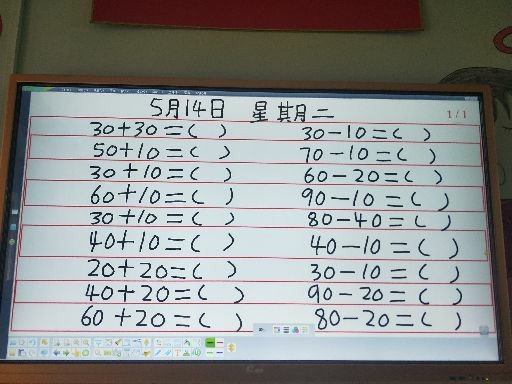 5月14日 星期二
1/1
30+30=( ) 30-10=( )
50+10=( ) 70-10=( )
30+10=( ) 60-20=( )
60+10=( ) 90-10=( )
30+10=( ) 80-40=( )
40+10=( ) 40-10=( )
20+20=( ) 30-10=( )
40+20=( ) 90-20=( )
60+20=( ) 80-20=( )